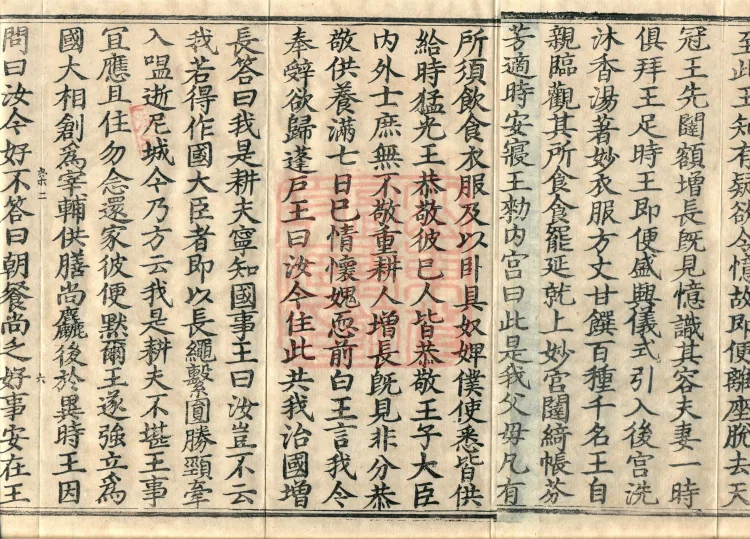 至此王知有疑欲令憶故即便離座脫去天
冠王先闊額增長既見憶識其容夫妻一時
俱拜王足時王即便盛興儀式引入後宮洗
沐香湯著妙衣服方丈甘饌百種千名王自
親臨觀其所食食罷延就上妙宮闈綺帳芬
芳適時安寢王勑內宮曰此是我父母凡有
所須飲食衣服及以卧具奴婢僕使悉皆供
給時猛光王恭敬彼已人皆恭敬王子大臣
內外士庶無不敬重耕人增長既見非分恭
敬供養滿七日已情懷媿恧前白王言我今
奉辭欲歸蓬戶王曰汝今住此共我治國增
長答曰我是耕夫寧知國事王曰汝豈不云
我若得作國大臣者即以長繩繫圓勝頸牽
入嗢逝尼城今乃方云我是耕夫不堪王事
宜應且住勿念還家彼便默爾王遂強立為
國大相創為宰輔供膳尚麤後於異時王因
問曰汝今好不答曰朝餐尚乏好事安在王
六